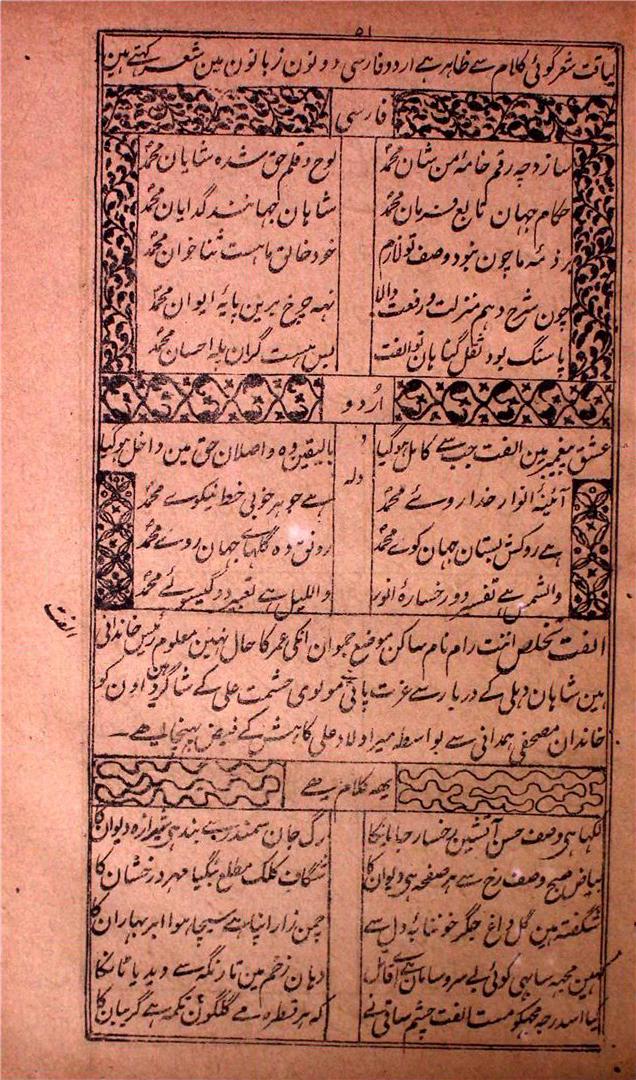 ۵۱
لیاقت شعرگوئی کلام سے ظاہر ہے اردو فارسی دونون زبانون مین شعر کہتے ہین
فارسی
سازد چہ رقم خامۂ من شان محمدؐ لوح و قلم حق شدہ شایان محمدؐ
حکام جہان تابع فرمان محمدؐ شاہان جہانند گدایان محمدؐ
بر ذمۂ ما چون نبود وصف تو لازم خود خالق ما ہست ثناخوان محمدؐ
چون شرح دہم منزلت و رفعت والا نہہ چرخ برین پایۂ ایوان محمدؐ
پاسنگ بود ثقل گناہان تو الفت بس ہست گران پلۂ احسان محمدؐ
اُردو
عشق پیغمبر مین الفت جب سے کامل ہوگیا بالیقین وہ واصلان حق مین داخل ہوگیا
ولہ
آئینۂ انوار خدا روے محمدؐ ہے جوہر خوبی خط نیکوے محمدؐ
ہے روکش بستان جہان کوے محمدؐ رونق دہ گلہاے جہان روے محمدؐ
والشمس ہے تفسیر دو رخسارۂ انور واللیل ہے تعبیر دو گیسوئے محمدؐ
الفت
الفت تخلص اننت رام نام ساکن موضع جیوان انکی عمر کا حال نہین معلوم رئیس خاندانی
ہین شاہان دہلی کے دربار سے عزت پائی مولوی حشمت علی کے شاگرد ہین اون کو
خاندان مصحفی ہمدانی سے بواسطہ میر اولاد علی کاہش کے فیض پہنچا ہے۔
یہ کلام ہے
لکہا ہی وصف حسن آتشین رخسار جانانکا رگ جان سمندر سے بندہی شیرازہ دیوان کا
بیاض صبح وصف رخ سے ہر صفحہ ہی دیوان کا شگاف کلک مطلع بنگیا مہر درخشان کا
شگفتہ ہین گل داغ جگر خوننابۂ دل سے چمن زار اپنا ہے سیچا ہوا ابر بہاران کا
کہین مجہہ سا بہی کوئی بے سر و سامان ہے اقاتل دہان زخم مین تار نگہ سے دیدیا ٹانکا
کیا اسدرجہ مجہکو مست الفت چشم ساقی نے کہ ہر قطرہ مے گلگون کا تکمہ ہے گریبان کا